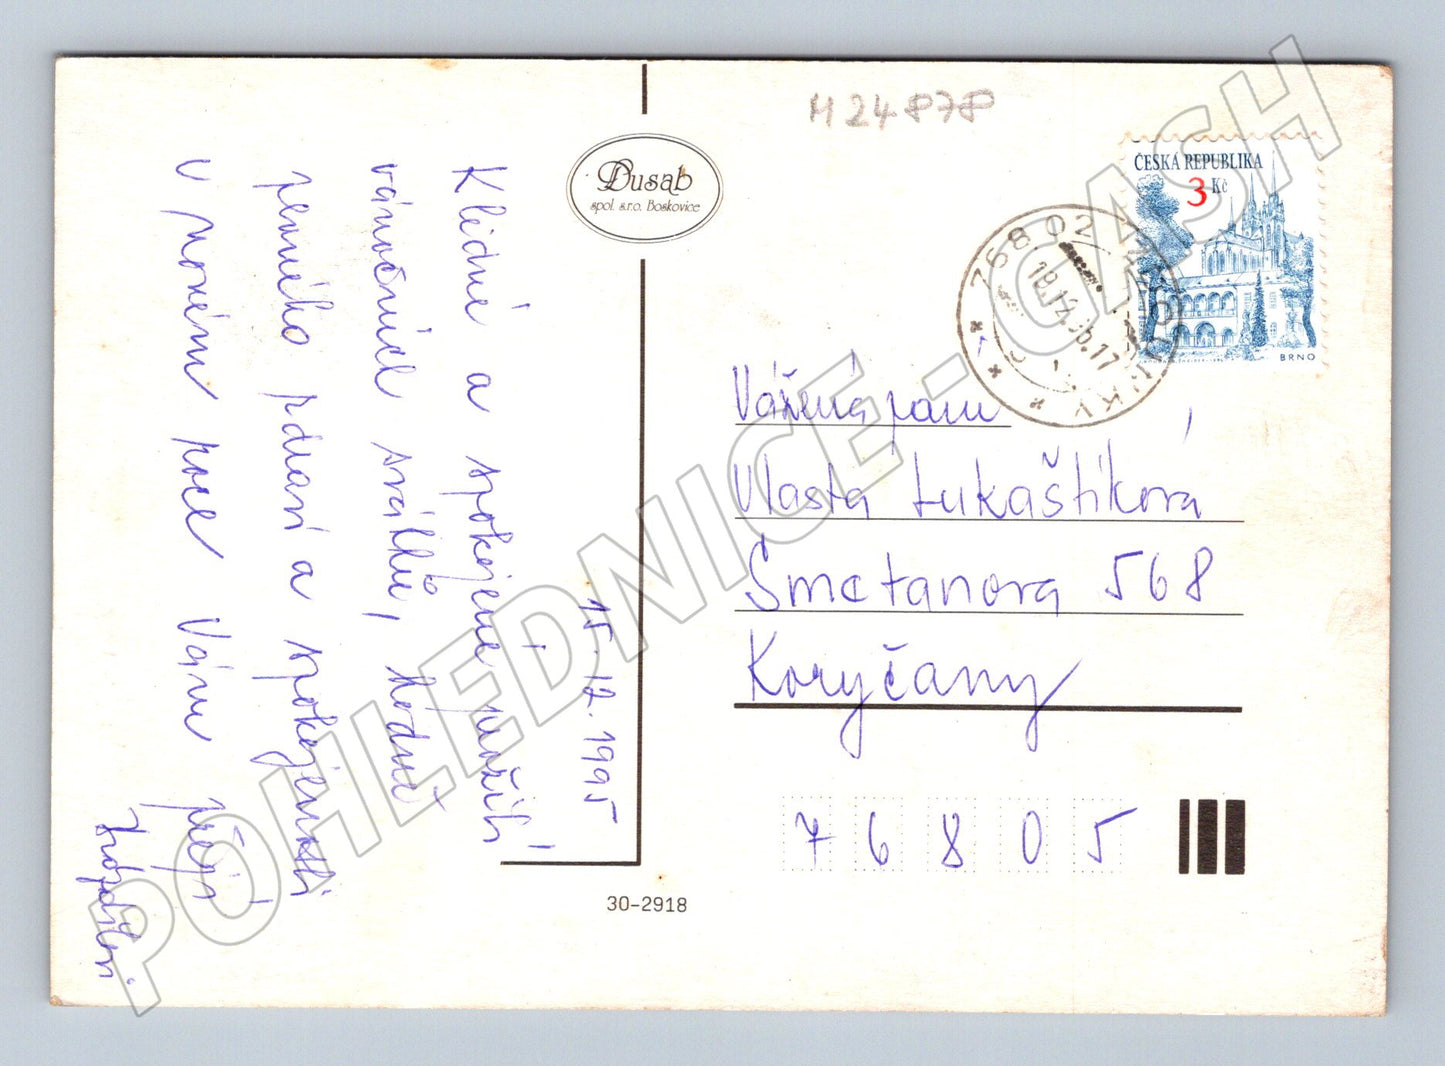 M 24 878
ČESKÁ REPUBLIKA
3 Kč
BRNO
768 02
15. 12. 1995
Klidné a spokojené prožití
vánočních svátků, hodně
pevného zdraví a spokojenosti
v novém roce Vám přejí
Dusab
spol. s.r.o. Boskovice
Vážená paní
Vlasta Lukaštíková
Smetanova 568
Koryčany
7 6 8 0 5
30-2918
POHLEDNICE-CASH